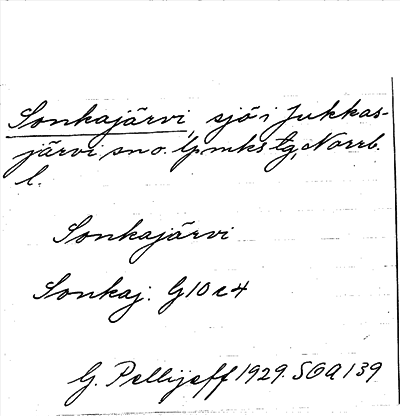 Sonkajärvi, sjö i Jukkas-
järvi sn o. lpmkstg, Norrb.
l.
Sonkajärvi
Sonkaj. G10c4
G. Pellijeff 1929. SOA 139